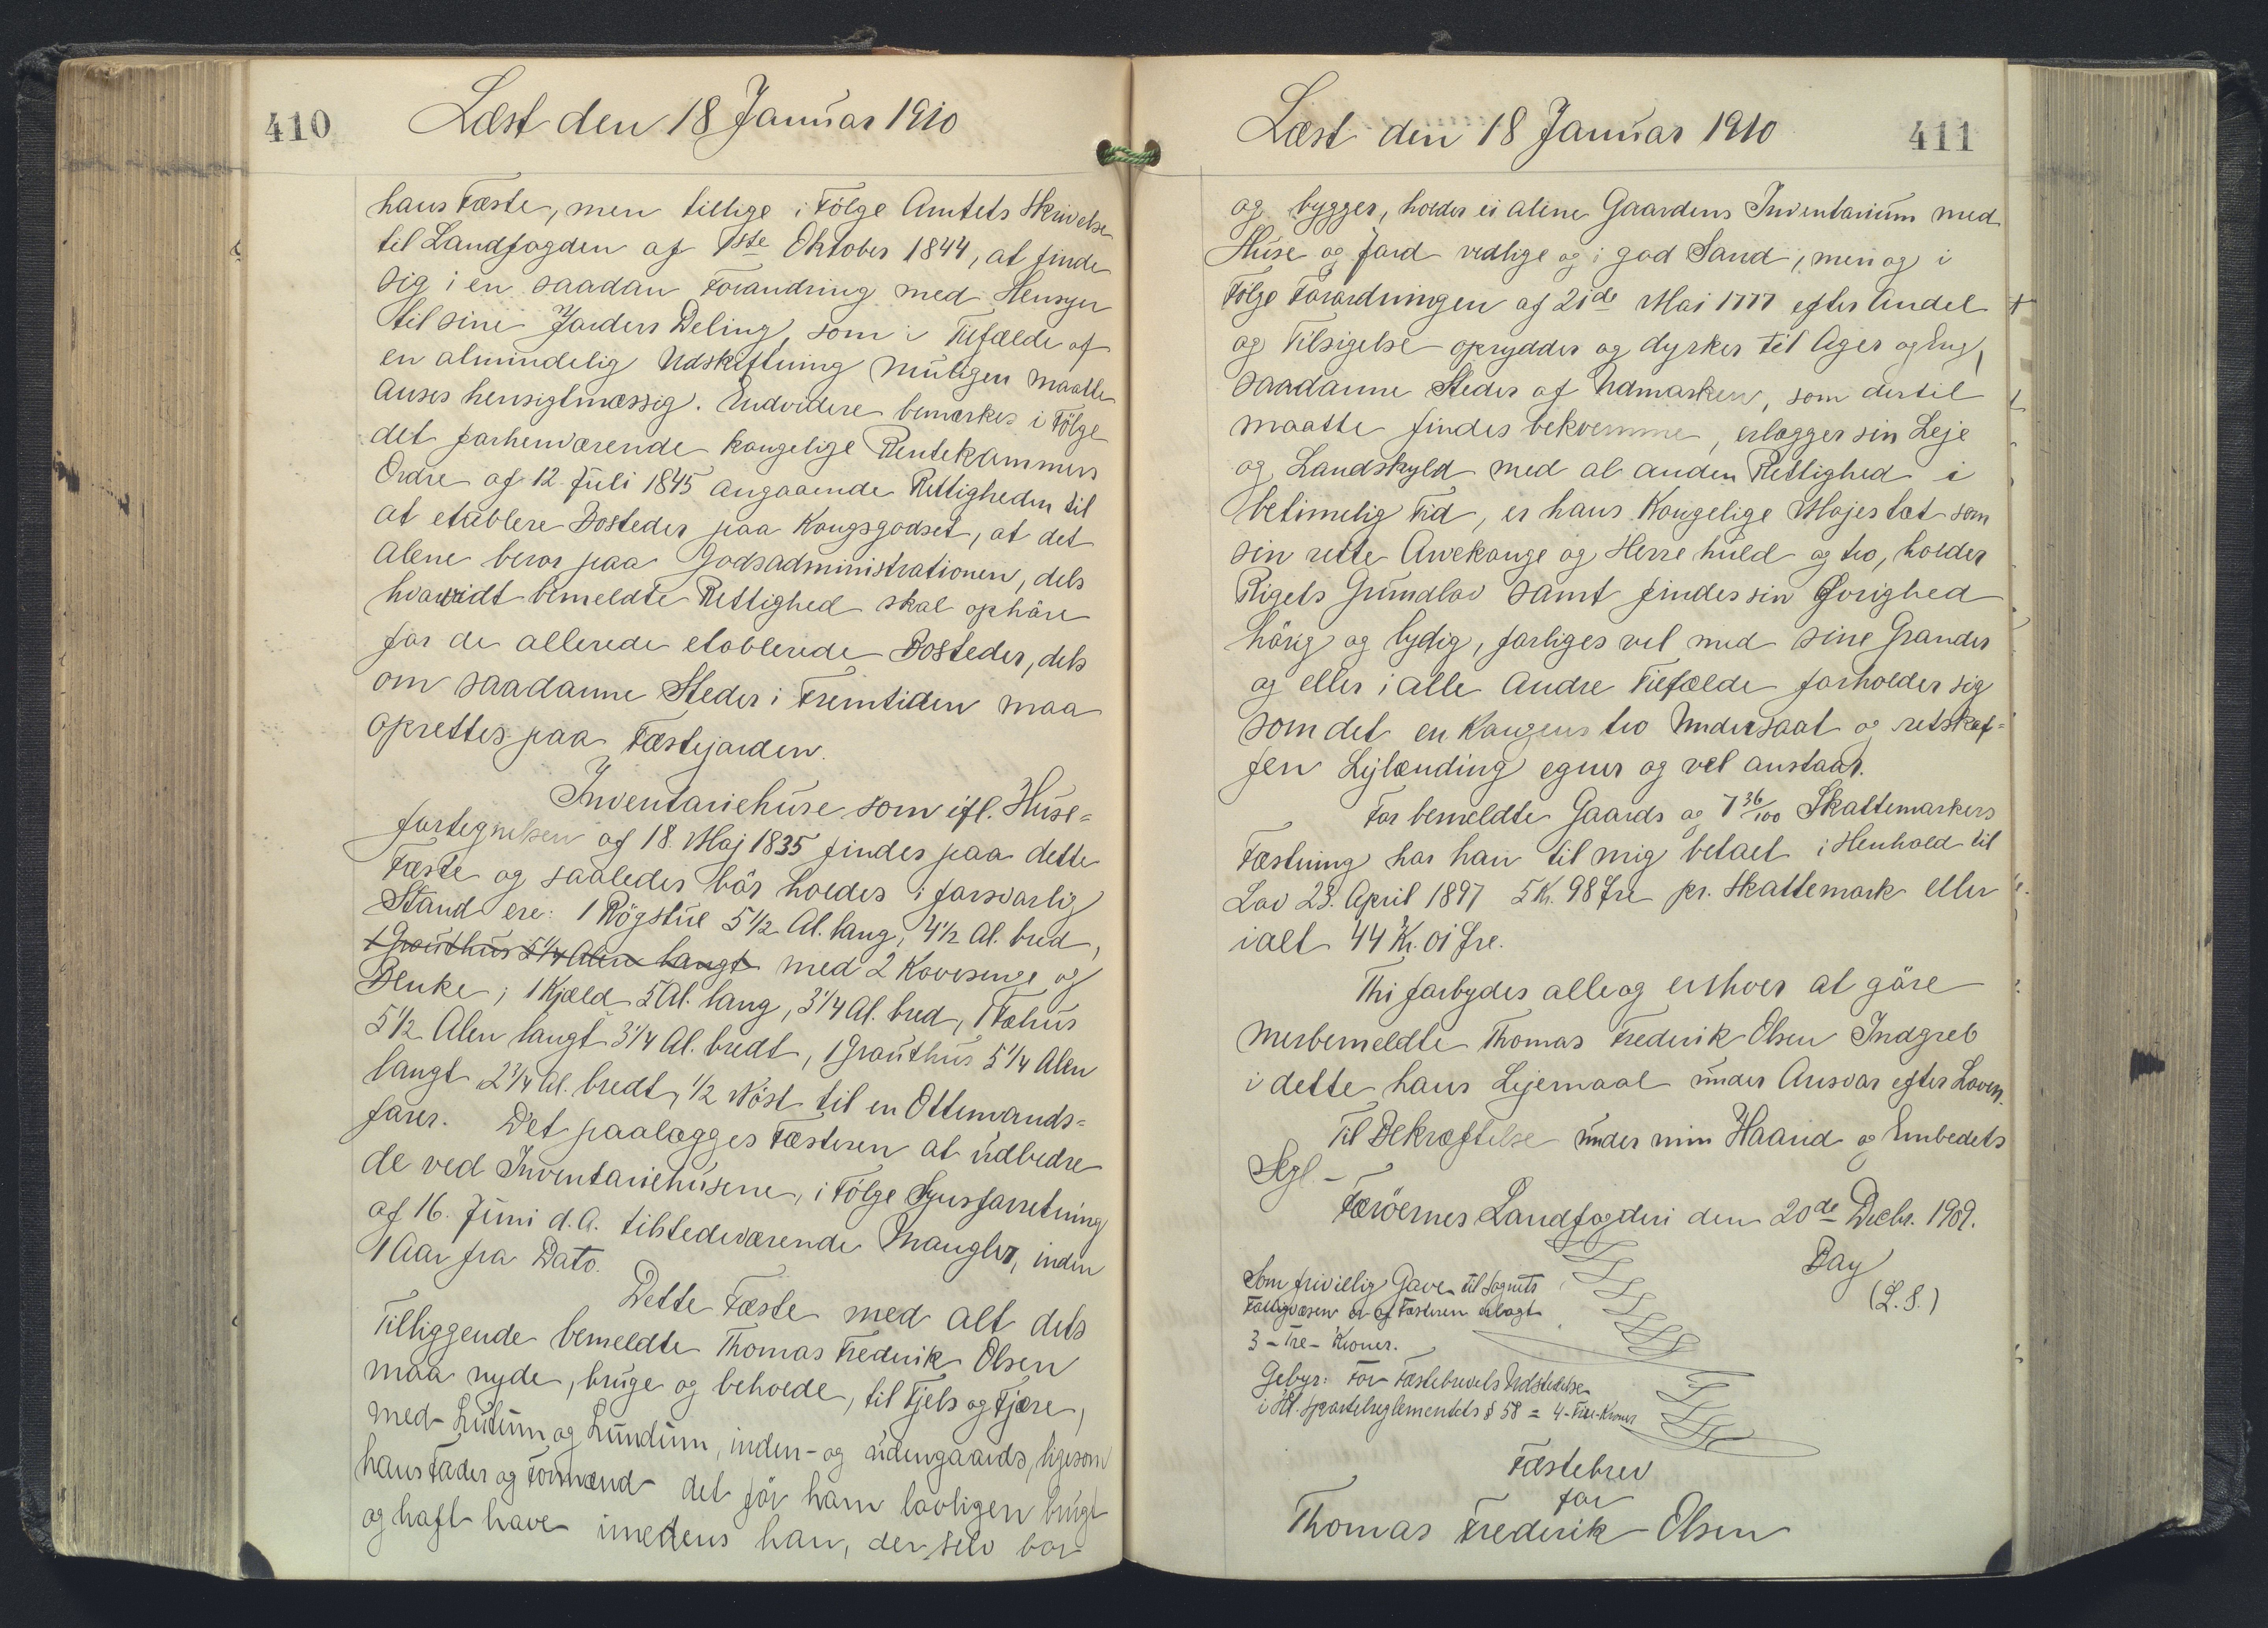 410
Læst den 18 Januar 1910
hans Fæste, men tillige i Følge Amtets Skrivelse
til Landfogden af 1ste Oktober 1844, at finde
sig i en saadan Forandring med Hensyn
til sine Jorders Deling, som i Tilfælde af
en almindelig Udskiftning muligen maatte
anses hensigtmæssig. Endvidere bemærkes i Følge
det forhenværende kongelige Rentekammers
Ordre af 12. Juli 1845 angaaende Rettigheden til
at etablere Bosteder paa Kongsgodset, at det
alene beror paa Godsadministrationen, dels
hvorvidt bemeldte Rettighed skal ophöre
for de allerede etablerede Bosteder, dels
om saadanne Steder i Fremtiden maa
oprettes paa Fæstejorden.
Inventariehuse som ifl. Huse=
fortegnelsen af 18. Maj 1835 findes paa dette
Fæste og saaledes bör holdes i forsvarlig
Stand ere: 1 Rögstue 5 1/2 Al. lang, 4 1/2 Al. bred,
1 Grouthus 5 1/4 Alen langt med 2 Kovesenge og
Benke; 1 Kjæld 5 Al. lang, 3 1/4 Al. bred, 1 Fæhus
5 1/2 Alen langt 3 1/4 Al. bredt, 1 Grouthus 5 1/4 Alen
langt 2 3/4 Al. bredt, 1/2 Nöst til en Ottemands=
farer. Det paalægges Fæsteren at udbedre
de ved Inventariehusene, i Følge Synsforretning
af 16. Juni d.A. tilstedeværende Mangler, inden
1 Aar fra Dato.
Dette Fæste med alt dets
Tilliggende bemeldte Thomas Frederik Olsen
maa nyde, bruge og beholde, til Fjels og Fjære,
med Lutum og Lundum, inden- og udengaards, ligesom
hans Fader og Formænd det för ham lovligen brugt
og haft have imedens han, der selv bor
Læst den 18 Januar 1910
411
og bygger, holder ei alene Gaardens Inventarium med
Huse og Jord vedlige og i god Stand, men og i
Følge Forordningen af 21de Mai 1777 efter Andel
og Tilsigelse oprydder og dyrker til Ager og Eng,
saadanne Steder af Udmarken, som dertil
maatte findes bekvemme, erlægger sin Leje
og Landskyld med al anden Rettighed i
betimelig Tid, er hans Kongelige Majestæt som
sin rette Arvekonge og Herre huld og tro, holder
Rigets Grundlov samt findes sin Øvrighed
hörig og lydig, forliges vel med sine Grander
og eller i alle Andre Tilfælde forholder sig
som det en Kongens tro Undersaat og retskaf=
fen Lejlænding egner og vel anstaar.
For bemeldte Gaards og 7 36/100 Skattemarkers
Fæstning har han til mig betalt i Henhold til
Lov 23. April 1897 5 Kr. 98 Øre pr. Skattemark eller
ialt 44 Kr. 01 Øre.
Thi forbydes alle og enhver at göre
merbemeldte Thomas Frederik Olsen Indgreb
i dette hans Lejemaal under Ansvar efter Loven.
Til Bekræftelse under min Haand og Embedets
Segl.-
Færöernes Landfogderi den 20de Decbr. 1909.
Bay
(L.S.)
Som frivillig Gave til Sognets
Fattigvæsen er af Fæsteren erlagt
3 - Tre - Kroner.
Gebyr: For Fæstebrevets Udstedelse
i Hl. Sportelreglementets § 58 = 4 - Fire - Kroner
Fæstebrev
for
Thomas Frederik Olsen